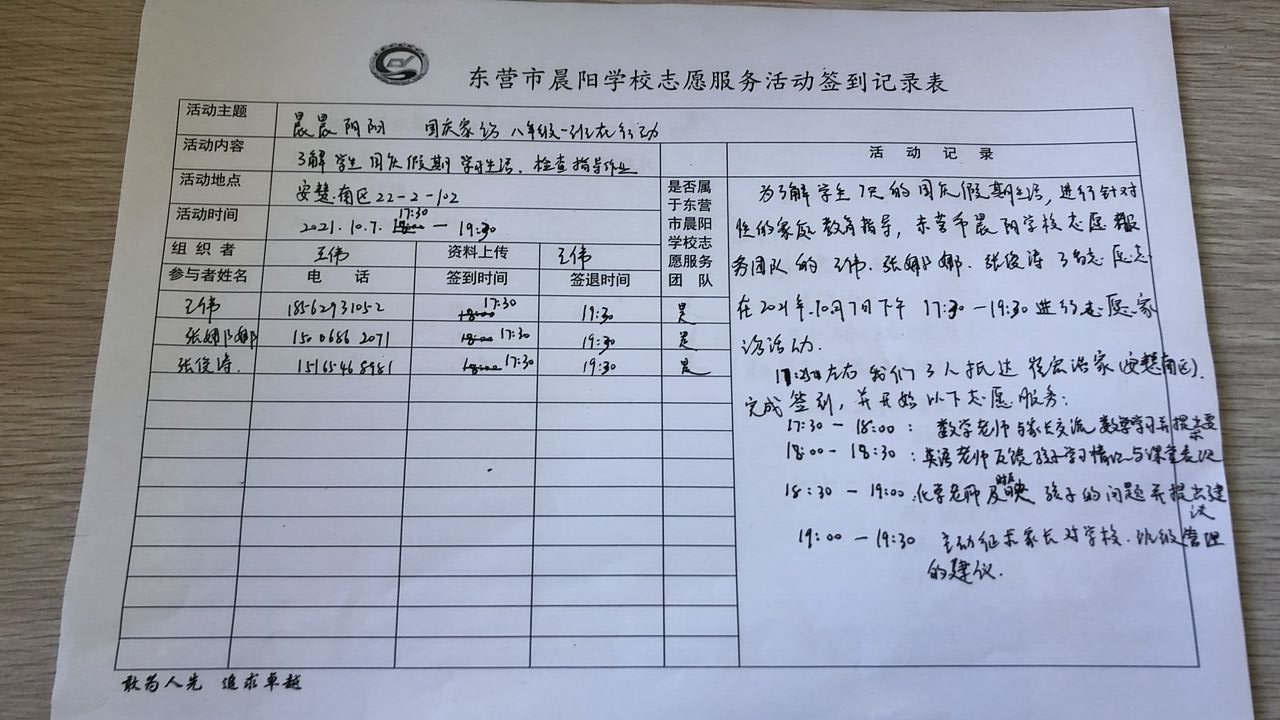 东营市晨阳学校志愿服务活动签到记录表
活动主题 晨晨阳阳 国庆家访 八年级一班在行动
活动内容 了解学生国庆假期学习生活、检查指导作业
活动地点 安慧南区22-2-102
活动时间 2021.10.7. 17:30 — 19:30
组织者 王伟 资料上传 王伟
参与者姓名 电话 签到时间 签退时间 是否属于东营市晨阳学校志愿服务团队
王伟 18562931052 17:30 19:30 是
张娜娜 15006862071 17:30 19:30 是
张俊涛 15165468981 17:30 19:30 是
活动记录
为了解学生7天的国庆假期生活,进行针对
性的家庭教育指导,东营市晨阳学校志愿服
务团队的王伟、张娜娜、张俊涛3名志愿志
在2021年10月7日下午 17:30—19:30进行志愿家
访活动.
左右我们3人抵达家(安慧南区).
完成签到,并开始以下志愿服务:
17:30 — 18:00: 数学老师与家长交流数学学习并提出要求
18:00 - 18:30: 英语老师反馈孩子学习情况与课堂表现
18:30 — 19:00 化学老师反映孩子的问题并提出建议
19:00 — 19:30 主动征求家长对学校、班级管理
的建议.
敢为人先 追求卓越